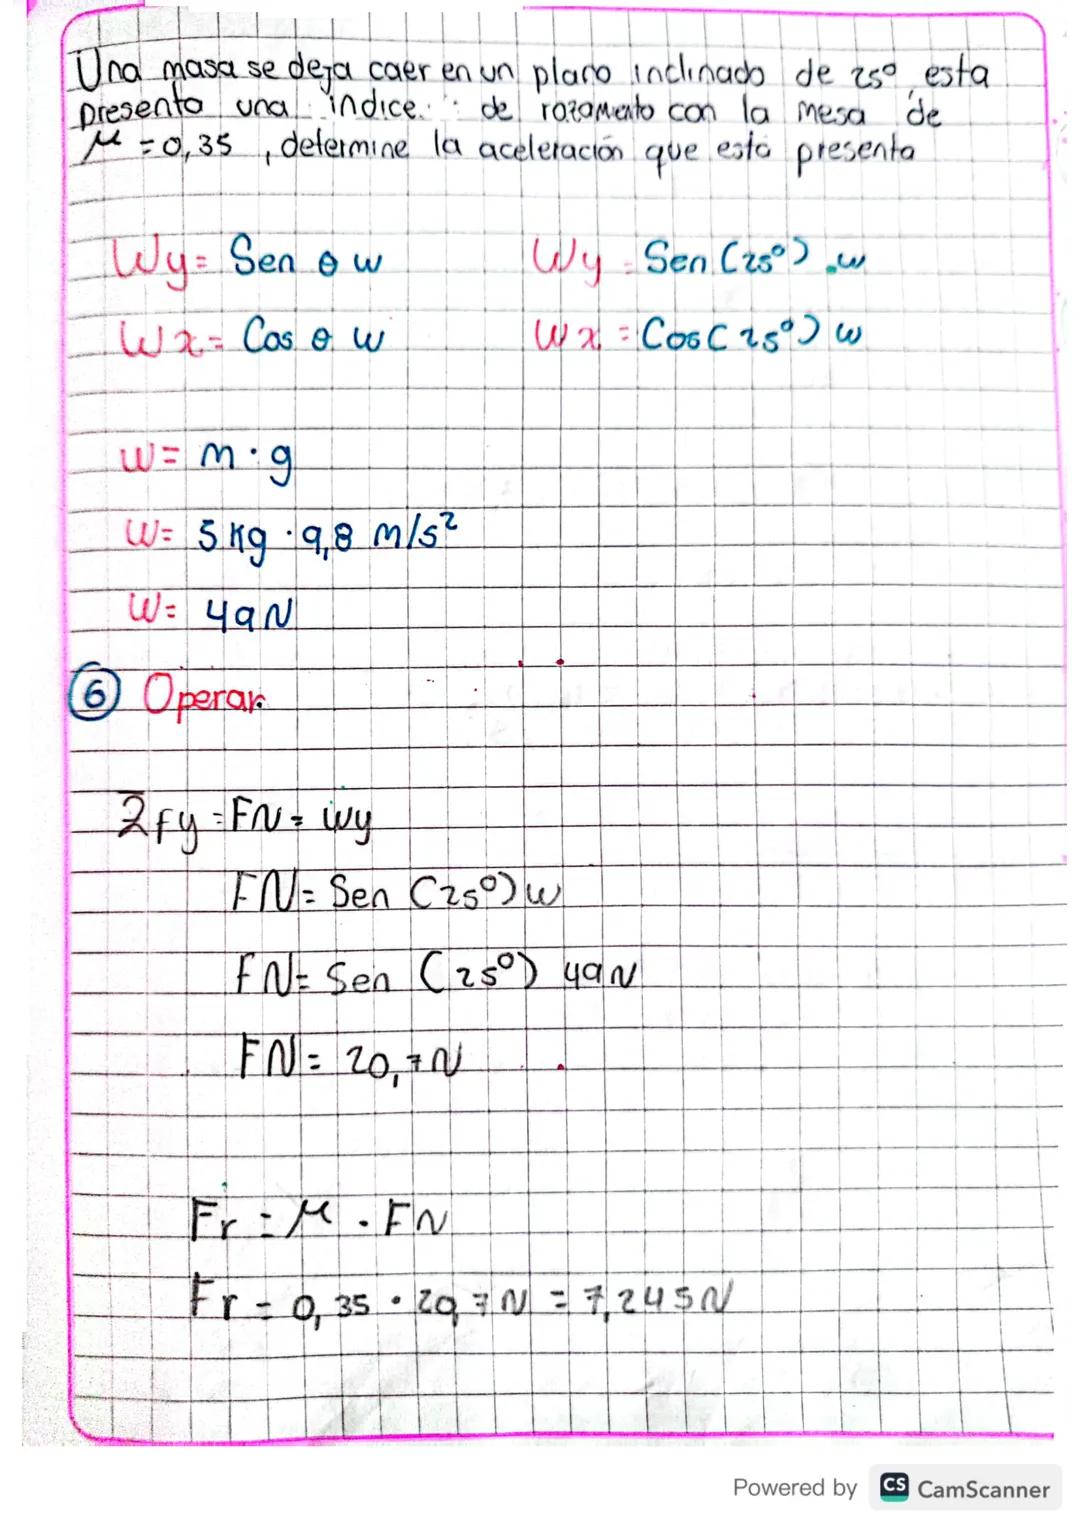 Una masa se deja caer en un plano inclinado de 25° esta
presenta una indice de rozamiento con la mesa de
μ = 0,35 , determine la aceleración que esta presenta
Wy = Sen θ w Wy = Sen (25°) . w
Wx = Cos θ w Wx = Cos (25°) w
W = m · g
W = 5 Kg · 9,8 m/s²
W = 49N
6 Operar.
Σfy = FN = wy
FN = Sen (25°) w
FN = Sen (25°) 49N
FN = 20,7N
Fr = μ . FN
Fr = 0,35 · 20,7N = 7,245N
Powered by CS CamScanner